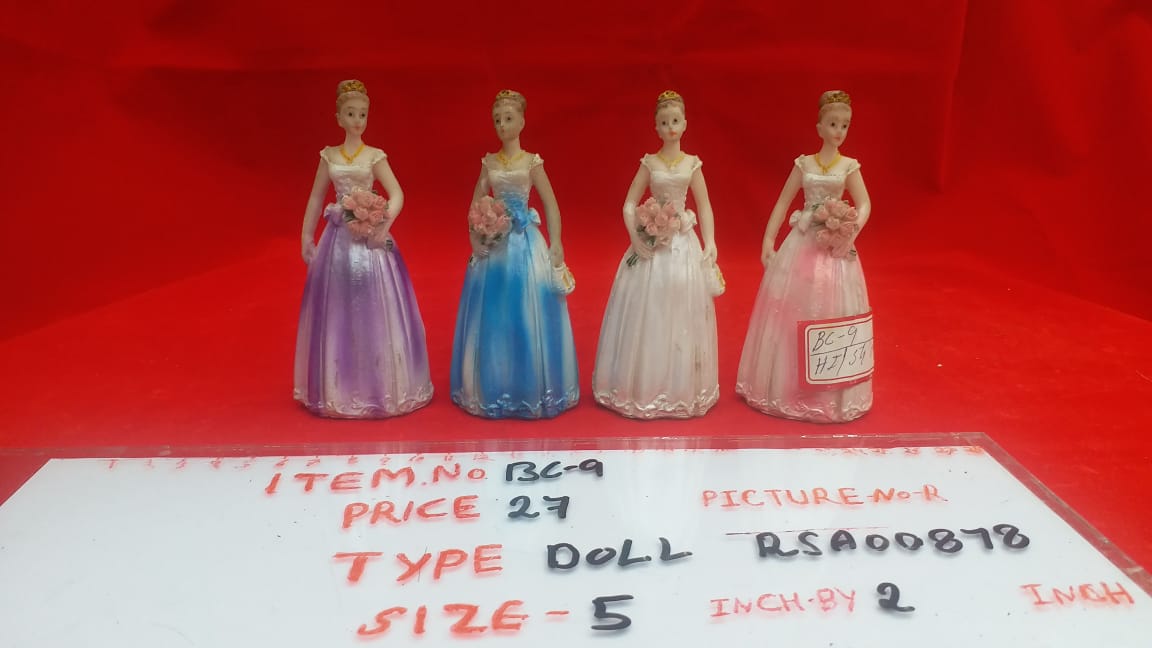 BC-9
HI/
ITEM.No BC-9
PRICE 27
PICTURE-No-R
TYPE DOLL RSA00878
SIZE - 5 INCH-BY 2 INCH